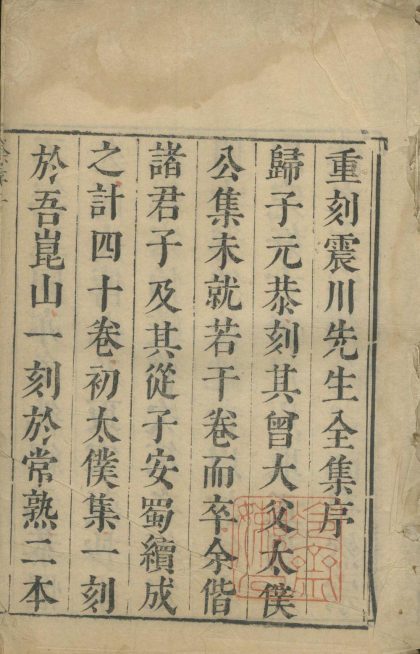 重刻震川先生全集序
歸子元恭刻其曾大父太僕
公集未就若干卷而卒余偕
諸君子及其從子安蜀續成
之計四十卷初太僕集一刻
於吾崑山一刻於常熟二本